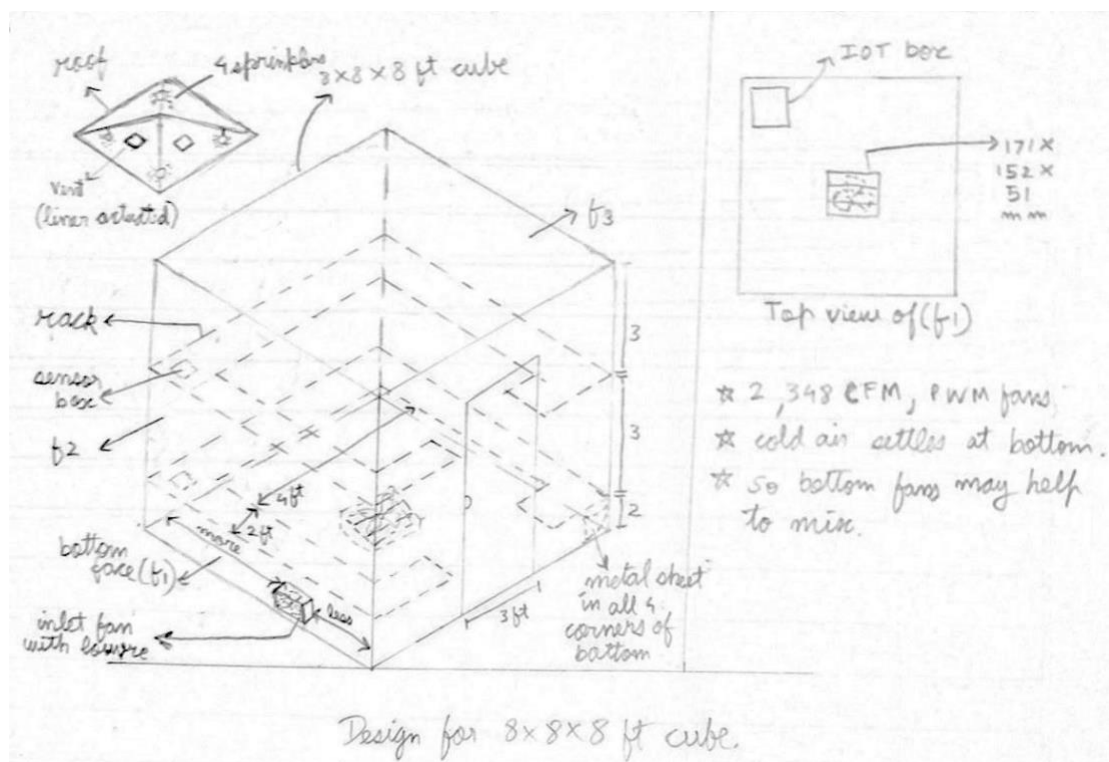 roof
4 sprinklers
8×8×8 ft cube
vent
(linear actuated)
f3
rack
sensor
box
f2
4ft
2ft
more
less
bottom
face (f1)
inlet fan
with louvre
3
3
2
3ft
metal sheet
in all 4
corners of
bottom
IOT box
171×
152×
51
mm
Top view of (f1)
☆ 2, 348 CFM, PWM fans,
☆ cold air settles at bottom.
☆ so bottom fans may help
to mix.
Design for 8×8×8 ft cube.